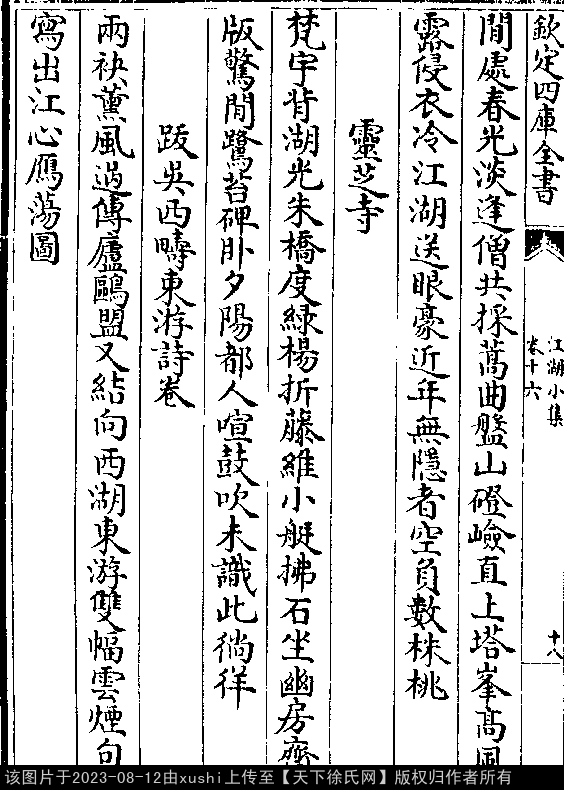 欽定四庫全書
江湖小集
卷十六
十八
閒處春光淡逢僧共採蒿曲盤山磴嶮直上塔峯高風
露侵衣冷江湖送眼豪近年無隱者空負數株桃
靈芝寺
梵宇背湖光朱橋度緑楊折藤維小艇拂石坐幽房齋
版驚閒鷺苔碑卧夕陽都人喧鼓吹未識此徜徉
跋吳西疇東游詩卷
兩袂薰風過傳廬鷗盟又結向西湖東游雙幅雲煙句
寫出江心鴈蕩圖
该图片于2023-08-12由xushi上传至【天下徐氏网】版权归作者所有